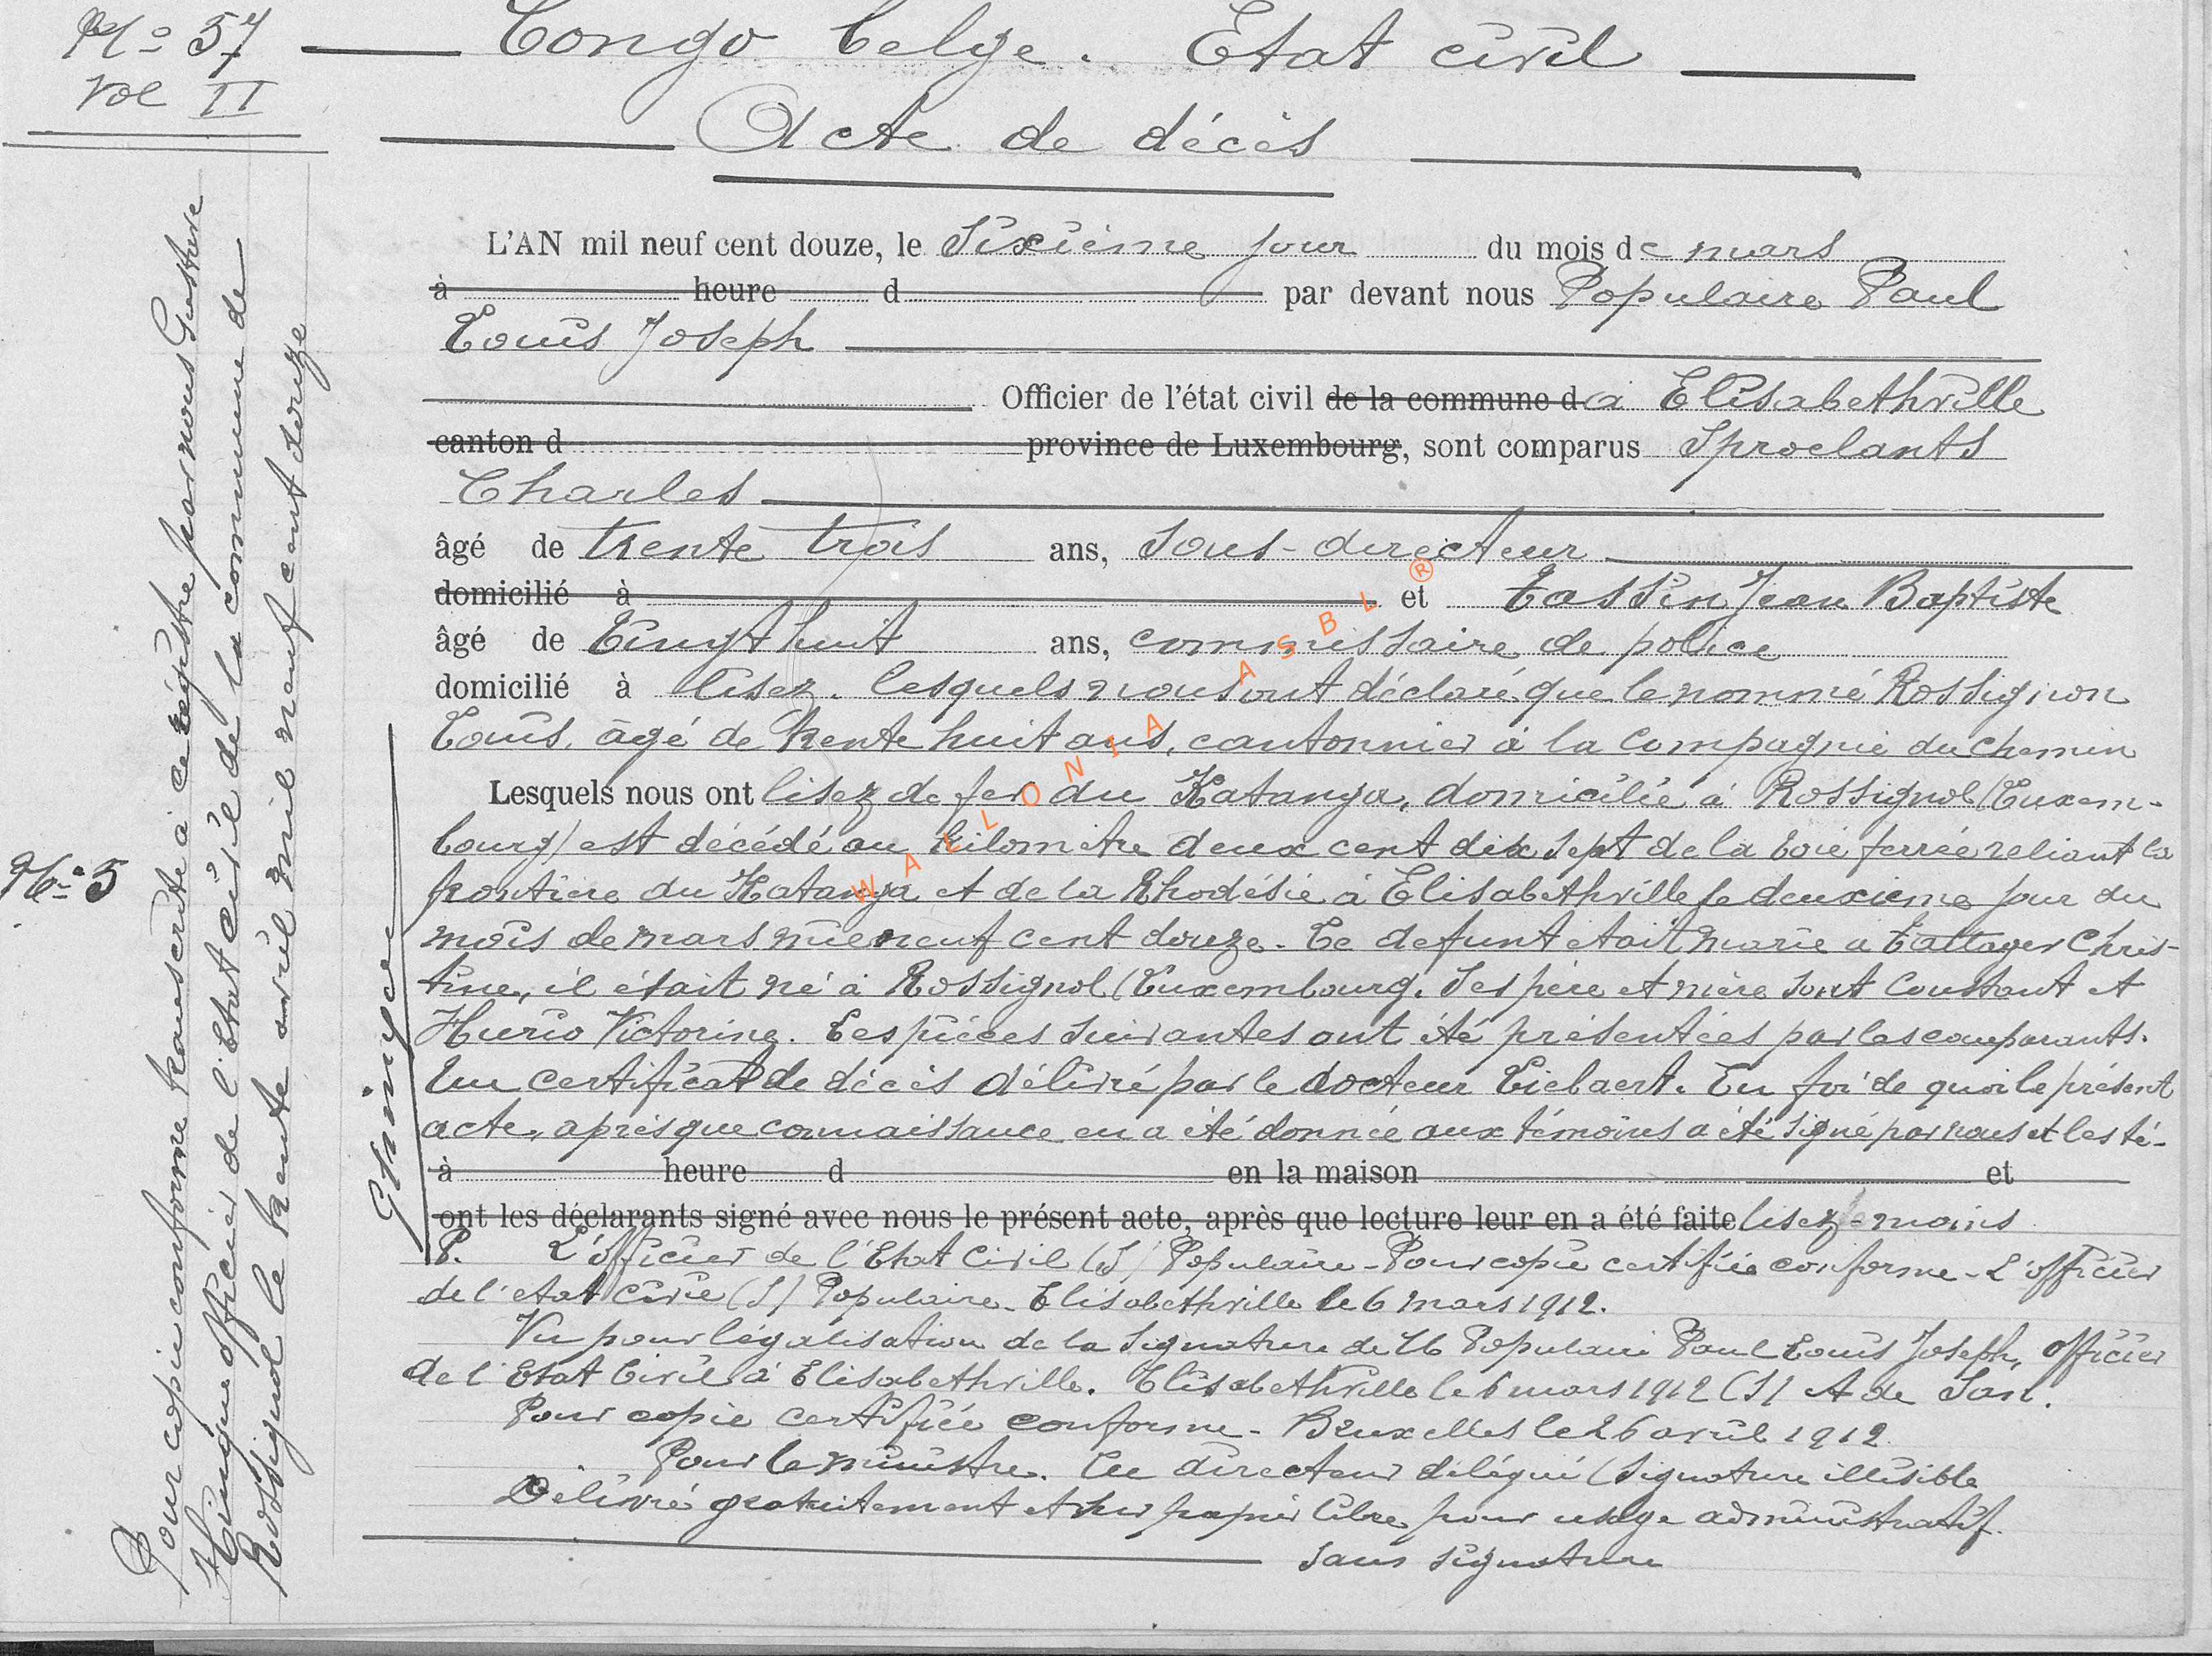 No 57
Vol II
Congo belge. Etat civil
Acte de décès
L'AN mil neuf cent douze, le Sixième jour du mois de mars
à heure d par devant nous Populaire Paul
Louis Joseph
Officier de l'état civil de la commune d à Elisabethville
canton d province de Luxembourg, sont comparus Sproelants
Charles
âgé de trente trois ans, Sous-directeur
domicilié à et Tassin Jean Baptiste
âgé de Vingt huit ans, commissaire de police
domicilié à lisez. lesquels nous ont déclaré que le nommé Rossignon
Louis, âgé de trente huit ans, cantonnier à la Compagnie du Chemin
Lesquels nous ont lisez de fer du Katanga, domicilié à Rossignol (Luxem-
bourg) est décédé au kilomètre deux cent dix sept de la voie ferrée reliant la
frontière du Katanga et de la Rhodésie à Elisabethville le deuxième jour du
mois de mars mil neuf cent douze. Le defunt etait marié a Chris-
tine, il était né à Rossignol (Luxembourg. Ses père et mère sont Constant et
Victorine. Les pièces suivantes ont été présentées par les comparants.
Un certificat de décès délivré par le docteur Liebaert. En foi de quoi le présent
acte, après que connaissance en a été donnée aux témoins a été signé par nous et les té-
à heure d en la maison et
ont les déclarants signé avec nous le présent acte, après que lecture leur en a été faite lisez - moins
P. L'officier de l'Etat Civil (S) Populaire - Pour copie certifiée conforme - L'officier
de l'etat civil (S) Populaire - Elisabethville le 6 mars 1912.
Vu pour légalisation de la signature de M Populaire Paul Louis Joseph, officier
de l'Etat Civil à Elisabethville. Elisabethville le 6 mars 1912 (S) A de
Pour copie certifiée conforme - Bruxelles le 26 avril 1912
Pour le ministre. Le directeur délégué (signature illisible
Délivré gratuitement et sur papier libre pour usage administratif.
sans signature
No 5
Pour copie conforme transcrite à ce régistre par nous Gustave
officier de l'état civil de la commune de
Rossignol le trente avril mil neuf cent douze
WALLONIA ASBL ®